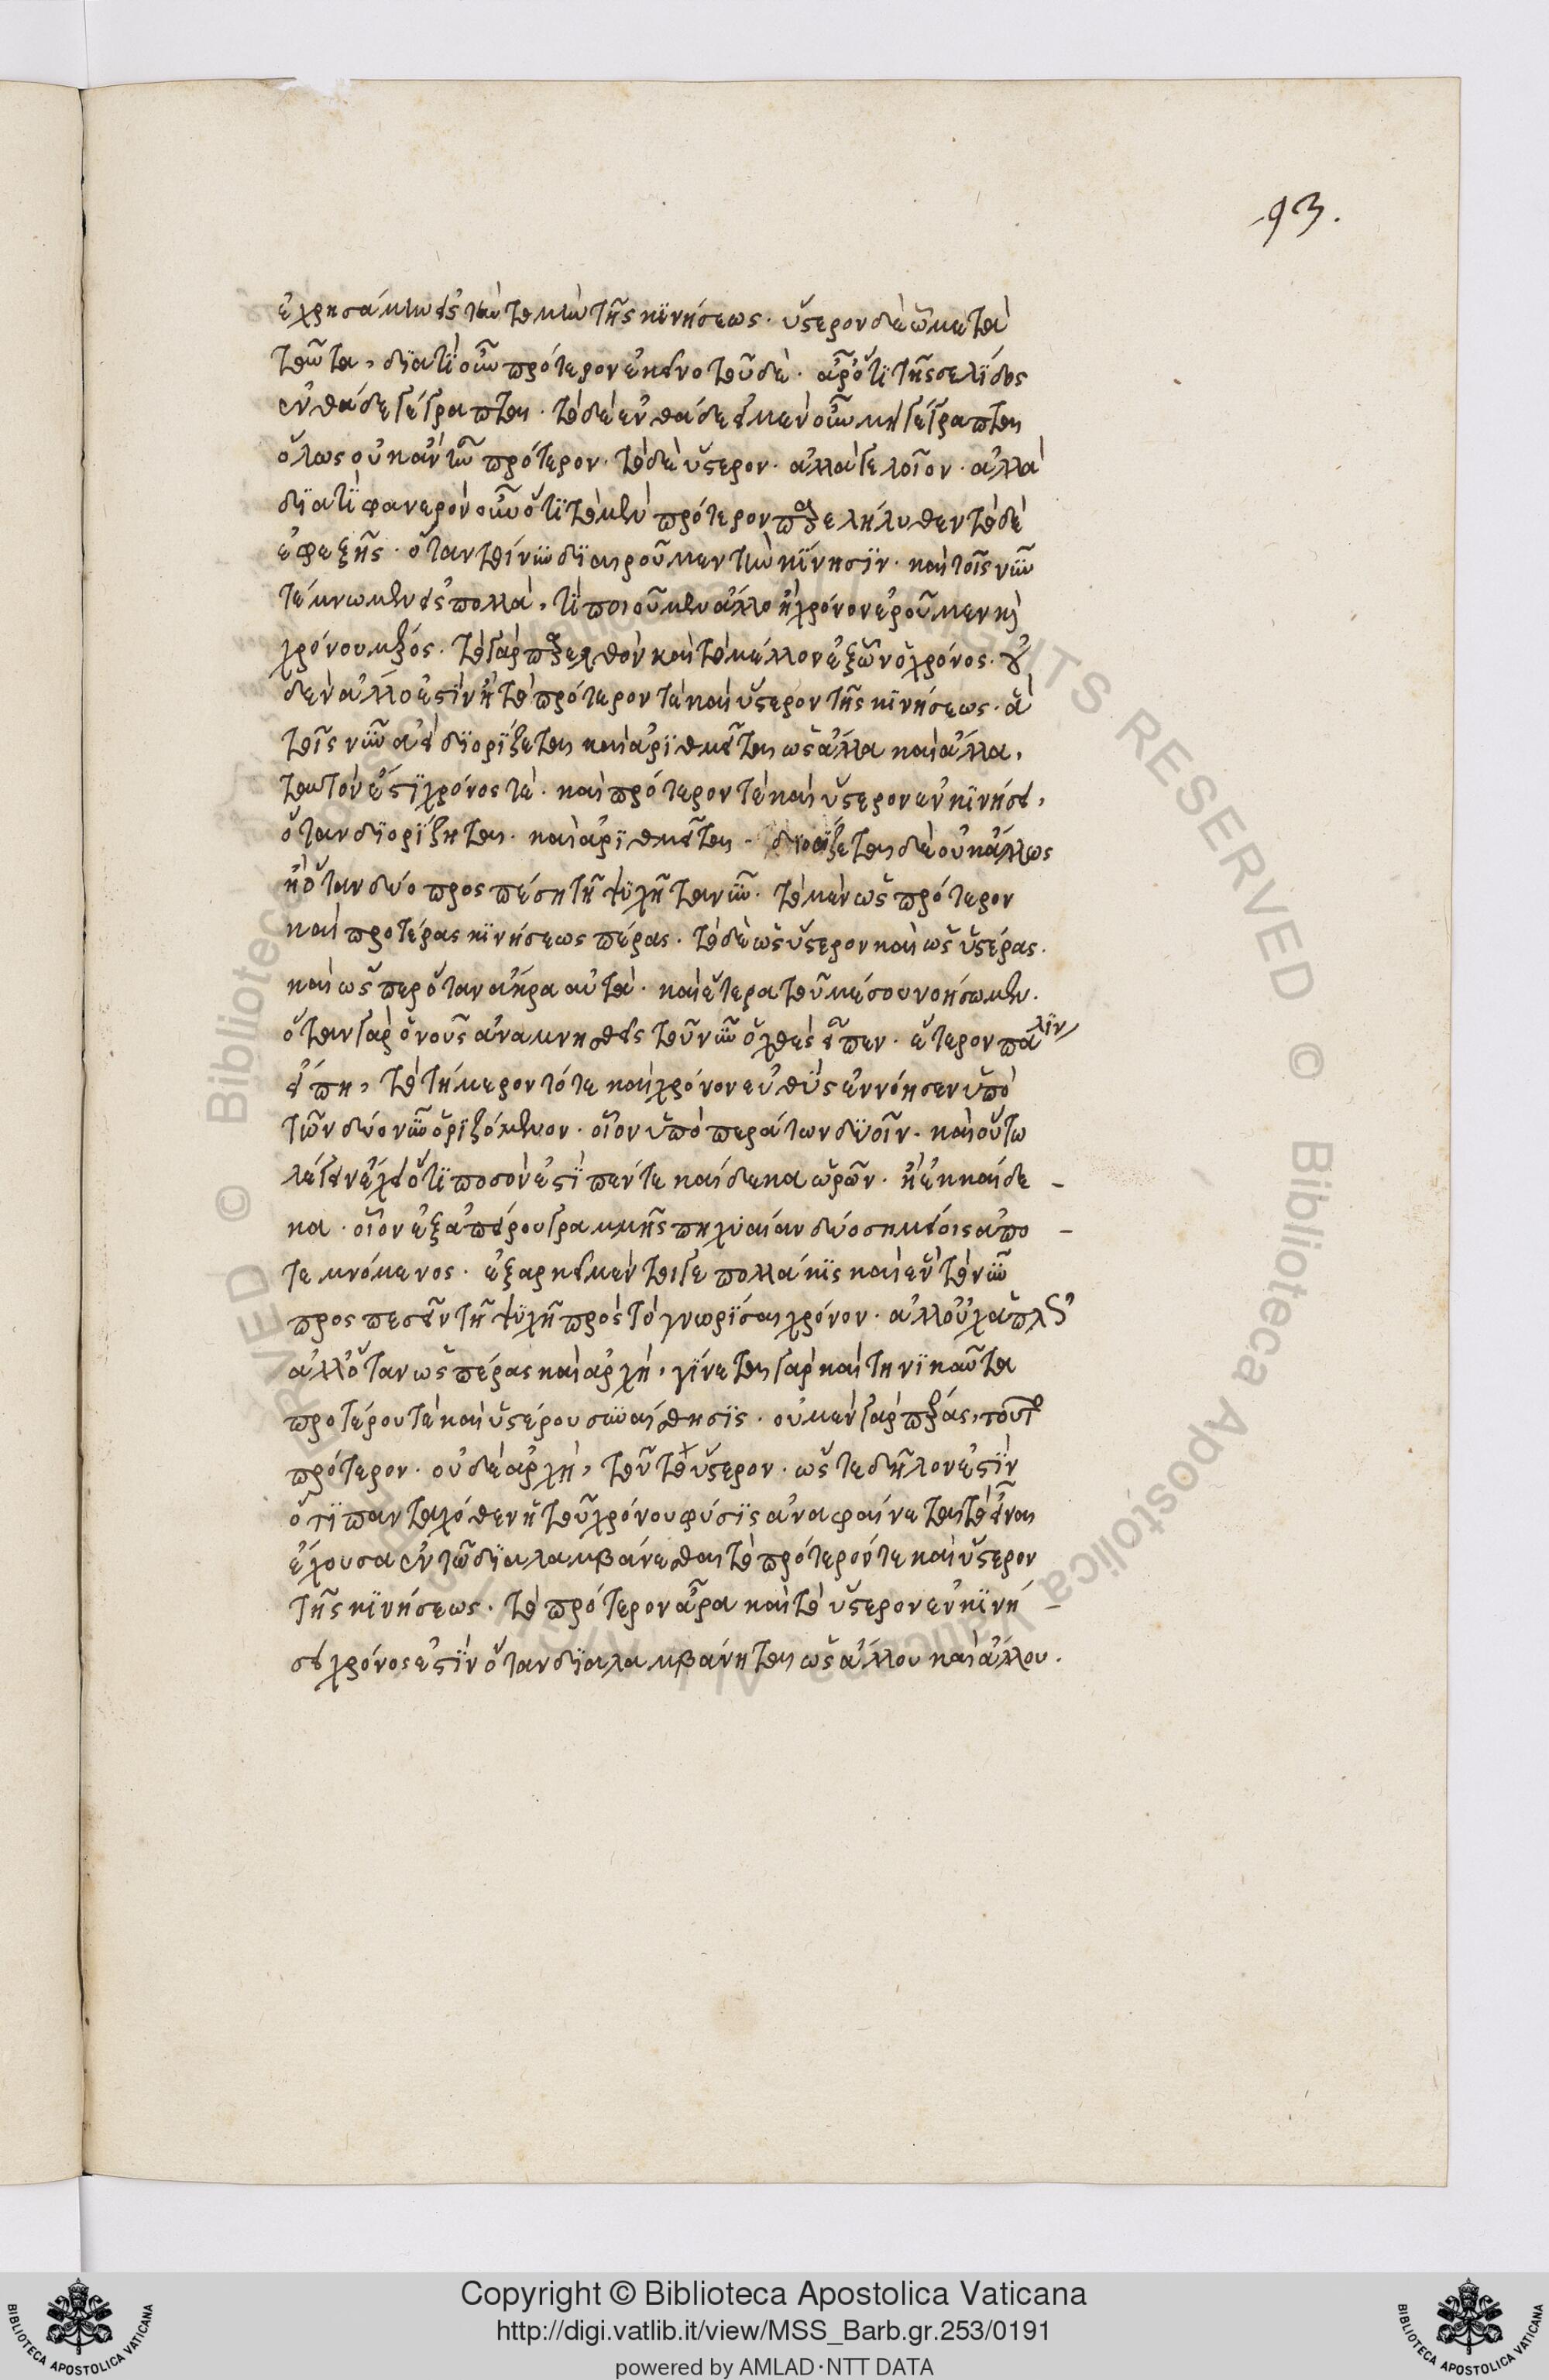 93.
ἐχρησάμην εἰς τὴν τομὴν τῆς κϊνήσεως. ὕστερον δὲ ὧ μετὰ
ταῦτα, δϊατί οὖν πρότερον ἐκεῖνο τοῦδὲ. ἆρ' ὅτϊ τῆς σελϊδος
ἐνθάδε γέγραπται. τὸ δὲ ἐνθάδε εἰ μὲν οὖν μὴ γέγραπται
ὅλως οὐκ ἂν ἦν πρότερον. τὸ δὲ ὕστερον. ἀλλὰ γελοῖον. ἀλλὰ
δϊατί φανερὸν οὖν ὅτϊ τὸ μὲν πρότερον παρεληλύθεν τὸ δὲ
ἐφεξῆς. ὅταν τοίνυν δϊαιροῦμεν τὴν κϊνησϊν. καὶ τοῖς νῦν
τέμνωμεν εἰς πολλὰ, τί ποιοῦμεν ἄλλο ἢ χρόνον ἐροῦμεν καὶ
χρόνου μέρος. τὸ γὰρ παρελθὸν καὶ τὸ μέλλον ἐξ ὧν ὁ χρόνος. οὐ
δὲν ἄλλο ἐστὶν ἢ τὸ πρότερον τὲ καὶ ὕστερον τῆς κϊνήσεως. ἃ
τοῖς νῦν ἀεὶ δϊορϊζεται καὶ ἀρϊθμεῖται ὡς ἄλλα καὶ ἄλλα,
ταυτὸν ἐστϊ χρόνος τὲ. καὶ πρότερον τὲ καὶ ὕστερον ἐν κϊνήσει,
ὅταν δϊορϊζηται. καὶ ἀρϊθμεῖται. δϊορϊζεται δὲ οὐκ ἄλλως
ἢ ὅταν δύο προσπέση τῆ ψϋχῆ τὰ νῦν. τὸ μὲν ὡς πρότερον
καὶ προτέρας κϊνήσεως πέρας. τὸ δὲ ὡς ὕστερον καὶ ὡς ὑστέρας.
καὶ ὥσπερ ὅταν ἄκρα αὐτὰ. καὶ ἕτερα τοῦ μέσου νοήσωμεν.
ὅταν γὰρ ὁ νοῦς ἀναμνησθεὶς τοῦ νῦν ὃ χθὲς εἶπεν. ἕτερον πάλϊν
εἴπη, τὸ τήμερον τότε καὶ χρόνον εὐθϋς ἐννόησεν ὑπὸ
τῶν δύο νῦν ὁρϊζόμενον. οἷον ὑπὸ περάτων δϋοῖν. καὶ οὕτω
λέγειν ἔχει ὅτϊ ποσὸν ἐστϊ πέντε καίδεκα ὡρῶν. ἢ ἐκκαίδε-
κα. οἷον ἐξ ἀπείρου γραμμῆς πηχυαίαν δύο σημείοις ἀπο-
τεμνόμενος. ἐξαρκεῖ μὲν τοιγε πολλάκϊς καὶ ἓν τὸ νῦν
προσπεσεῖν τῆ ψϋχῆ πρὸς τὸ γνωρίσαι χρόνον. ἀλλ' οὐχ ἁπλῶς
ἀλλ' ὅταν ὡς πέρας καὶ ἀρχὴ, γϊνεται γὰρ καὶ τηνϊκαῦτα
προτέρου τὲ καὶ ὑστέρου συναίσθησϊς. οὗ μὲν γὰρ πέρας, τοῦτο
πρότερον. οὗ δὲ ἀρχὴ, τοῦτο ὕστερον. ὥστε δῆλον ἐστϊν
ὅτϊ πανταχόθεν ἡ τοῦ χρόνου φύσϊς ἀναφαίνεται τὸ εἶναι
ἔχουσα ἐν τῶ δϊαλαμβάνεσθαι τὸ πρότερόν τε καὶ ὕστερον
τῆς κϊνήσεως. τὸ πρότερον ἄρα καὶ τὸ ὕστερον ἐν κϊνή-
σει χρόνος ἐστϊν ὅταν δϊαλαμβάνηται ὡς ἄλλου καὶ ἄλλου.
Copyright © Biblioteca Apostolica Vaticana
http://digi.vatlib.it/view/MSS_Barb.gr.253/0191
powered by AMLAD·NTT DATA